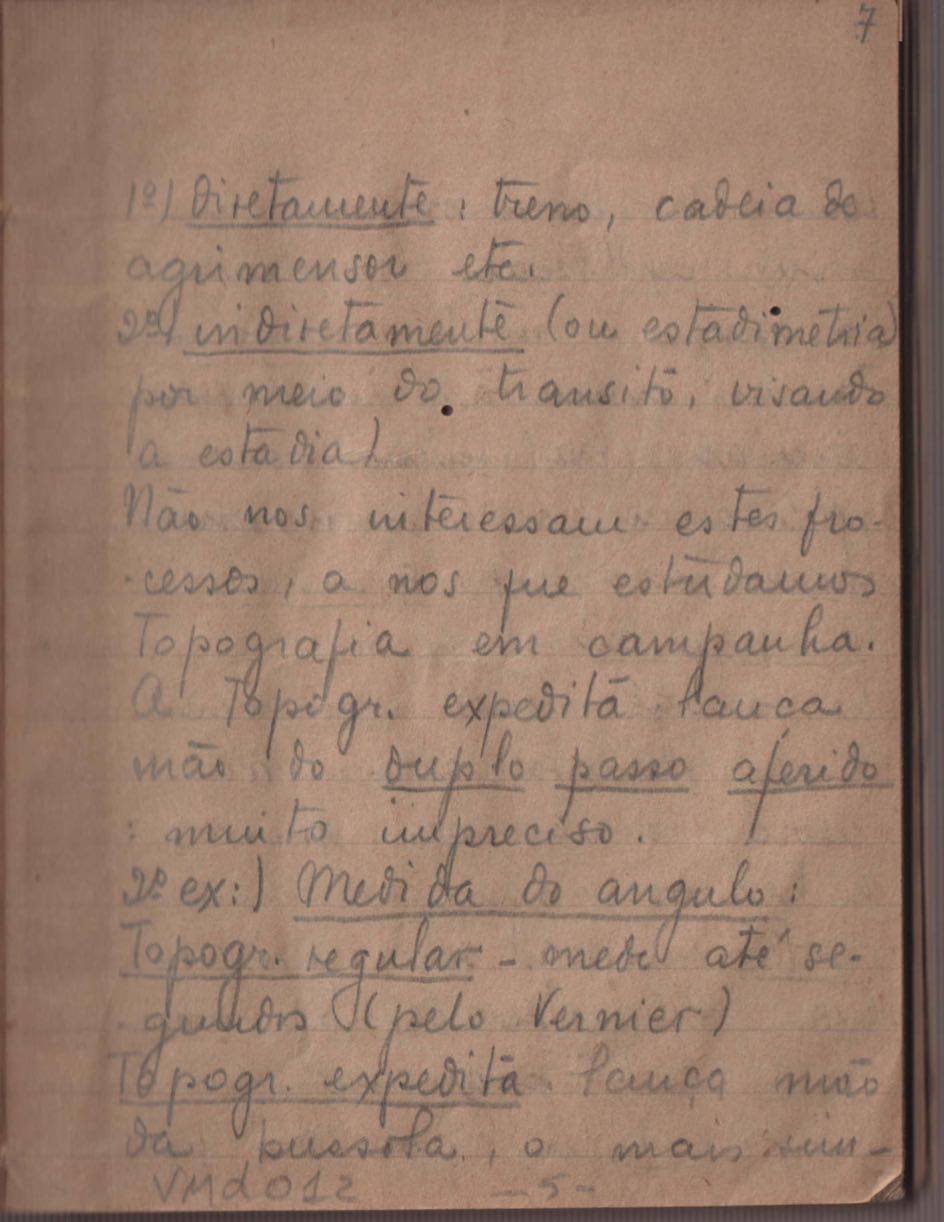 7
1º) diretamente: treno, cadeia de
agrimensor etc.
2º) indiretamente (ou estadimetria)
por meio do transito, visando
a estadia)
Não nos interessam estes pro-
-cessos, a nos que estudamos
Topografia em campanha.
A Topogr. expedita lança
mão do duplo passo aferido
: muito impreciso.
2º ex:) Medida do angulo:
Topogr. regular - mede até se-
-gundos (pelo Vernier)
Topogr. expedita lança mão
da bussola, o mais sim-
VMd012 -5-